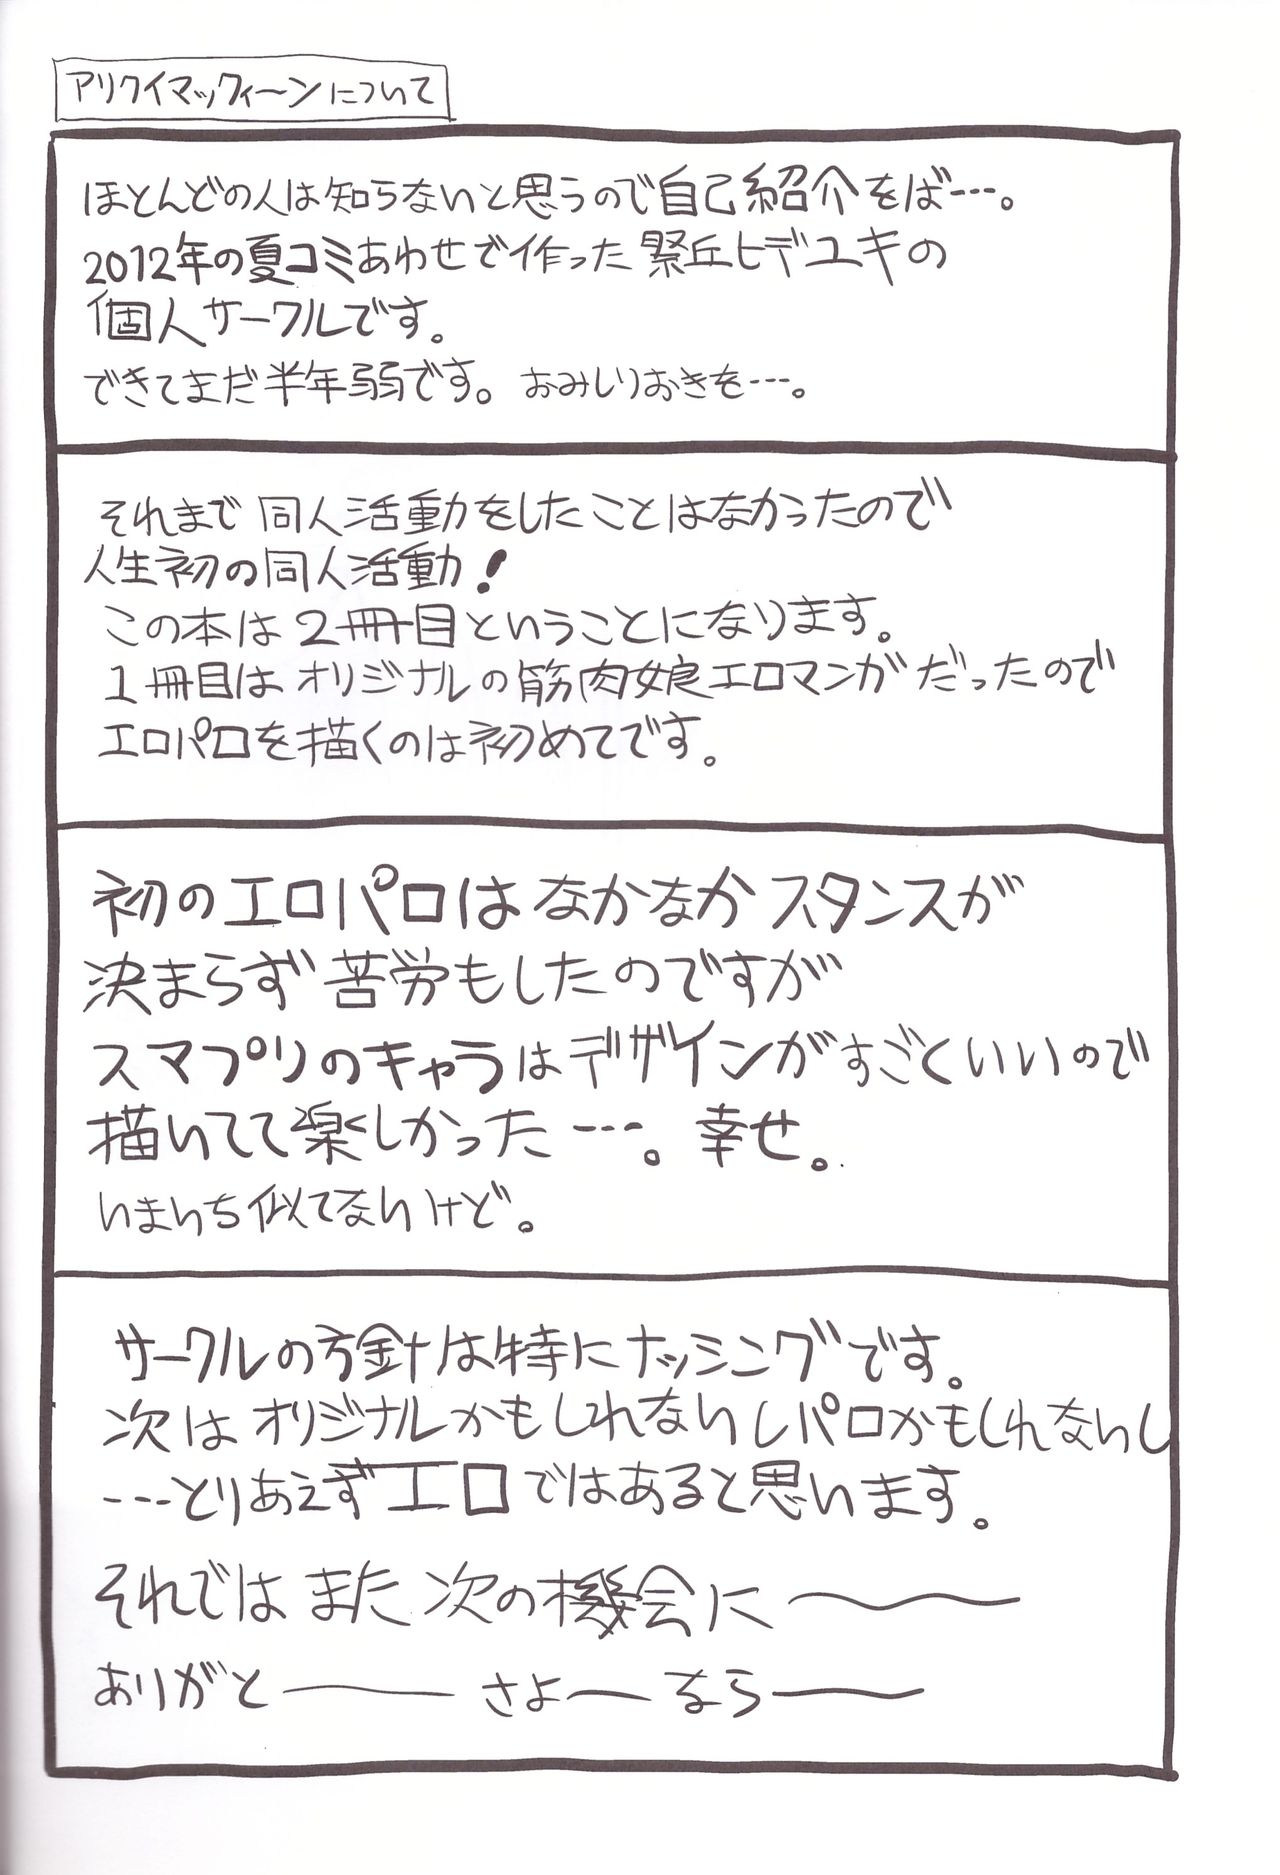 アリクイマックィーンについて
ほとんどの人は知らないと思うので自己紹介をば…。
2012年の夏コミあわせで作った祭丘ヒデユキの
個人サークルです。
できてまだ半年弱です。おみしりおきを…。
それまで同人活動をしたことはなかったので
人生初の同人活動!
この本は2冊目ということになります。
1冊目はオリジナルの筋肉娘エロマンガだったので
エロパロを描くのは初めてです。
初のエロパロはなかなかスタンスが
決まらず苦労もしたのですが
スマプリのキャラはデザインがすごくいいので
描いてて楽しかった…。幸せ。
いまいち似てないけど。
サークルの方針は特にナッシングです。
次はオリジナルかもしれないしパロかもしれないし
…とりあえずエロではあると思います。
それではまた次の機会に〜
ありがとーさよーならー